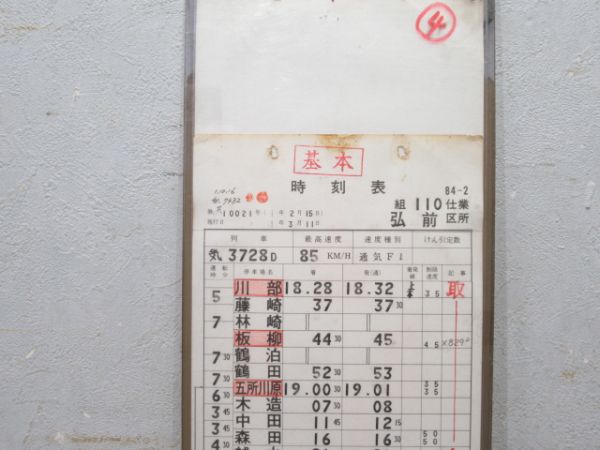 4
基本
時刻表
84-2
組 110 仕業
10021 年 2月15日
弘前 区所
3月11日
列車 最高速度 速度種別 けん引定数
気 3728D 85 KM/H 通気F1
運転時分 停車場名 着 発(通) 制限速度 記事
5 川部 18.28 18.32 35 取
藤崎 37 37 30
7 林崎 || ||
板柳 44 30 45 45
7 30 鶴泊 || ||
鶴田 52 30 53
7 30 五所川原 19.00 30 19.01 35 35
6 30 木造 07 30 08
3 45 中田 11 45 12 15
3 45 森田 16 16 30 50
4 30 50